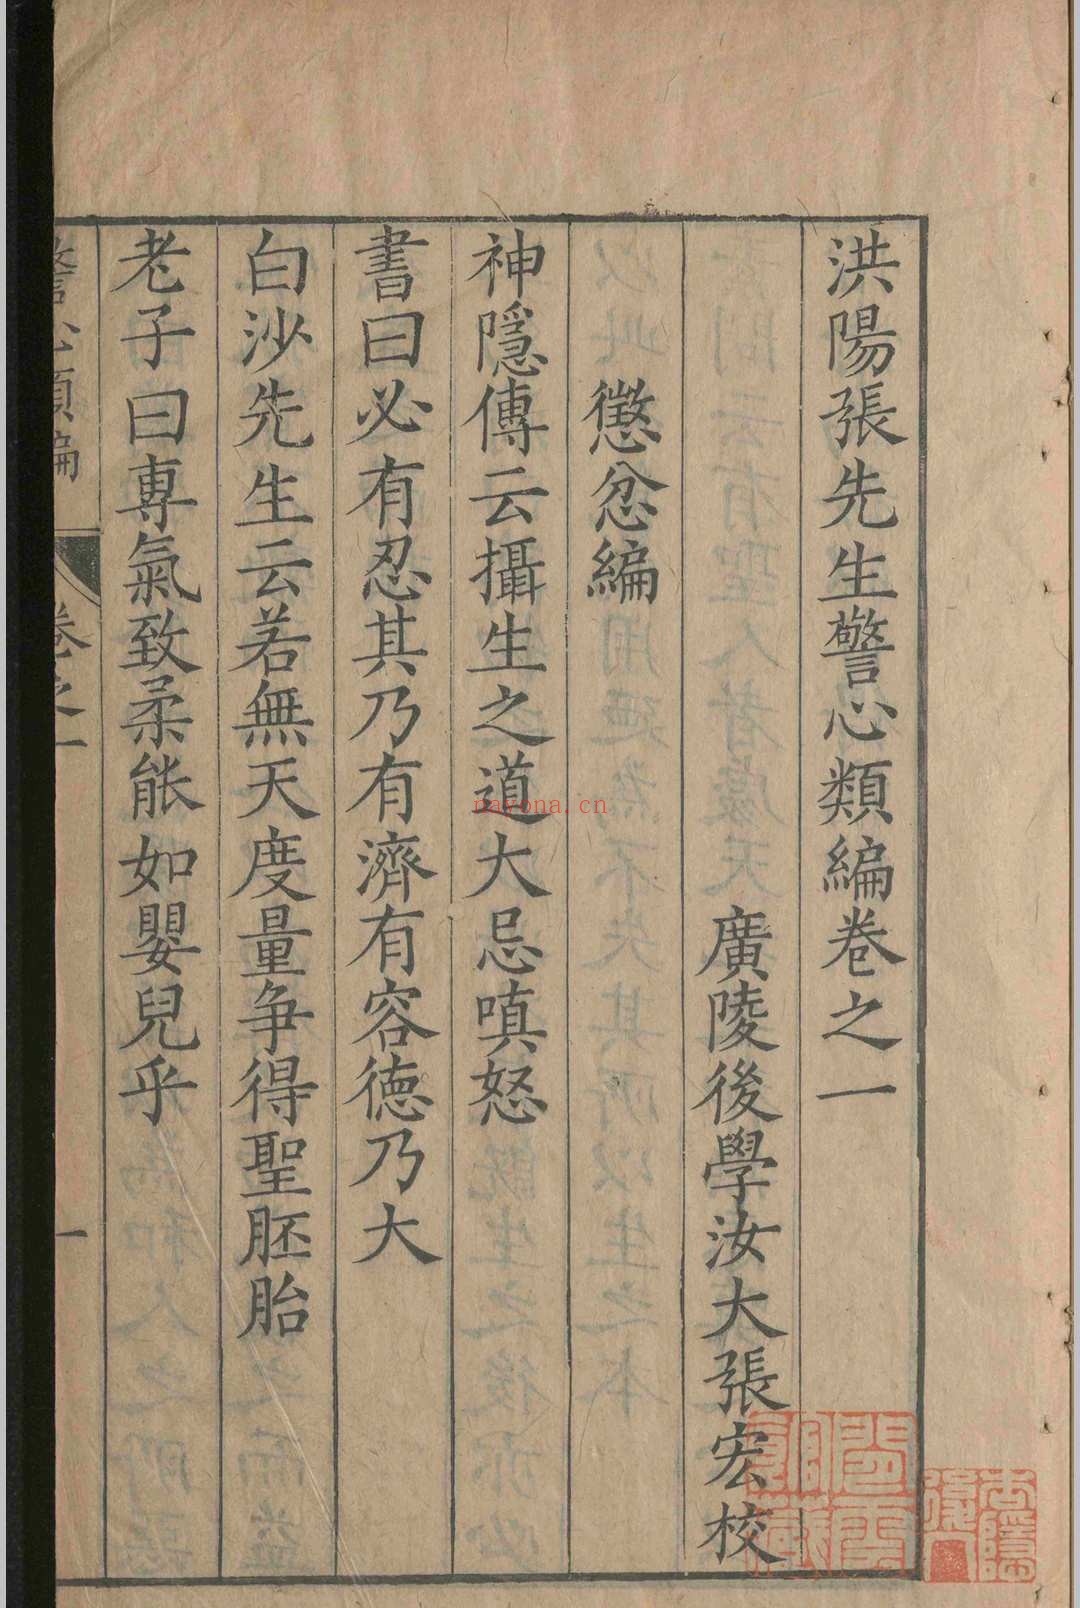 洪陽張先生警心類編卷之一
廣陵後學汝大張宏校
懲忿編
神隱傳云攝生之道大忌嗔怒
書曰必有忍其乃有濟有容德乃大
白沙先生云若無天度量争得聖胚胎
老子曰專氣致柔能如嬰兒乎
警心類編
卷之一
一
nayona.cn